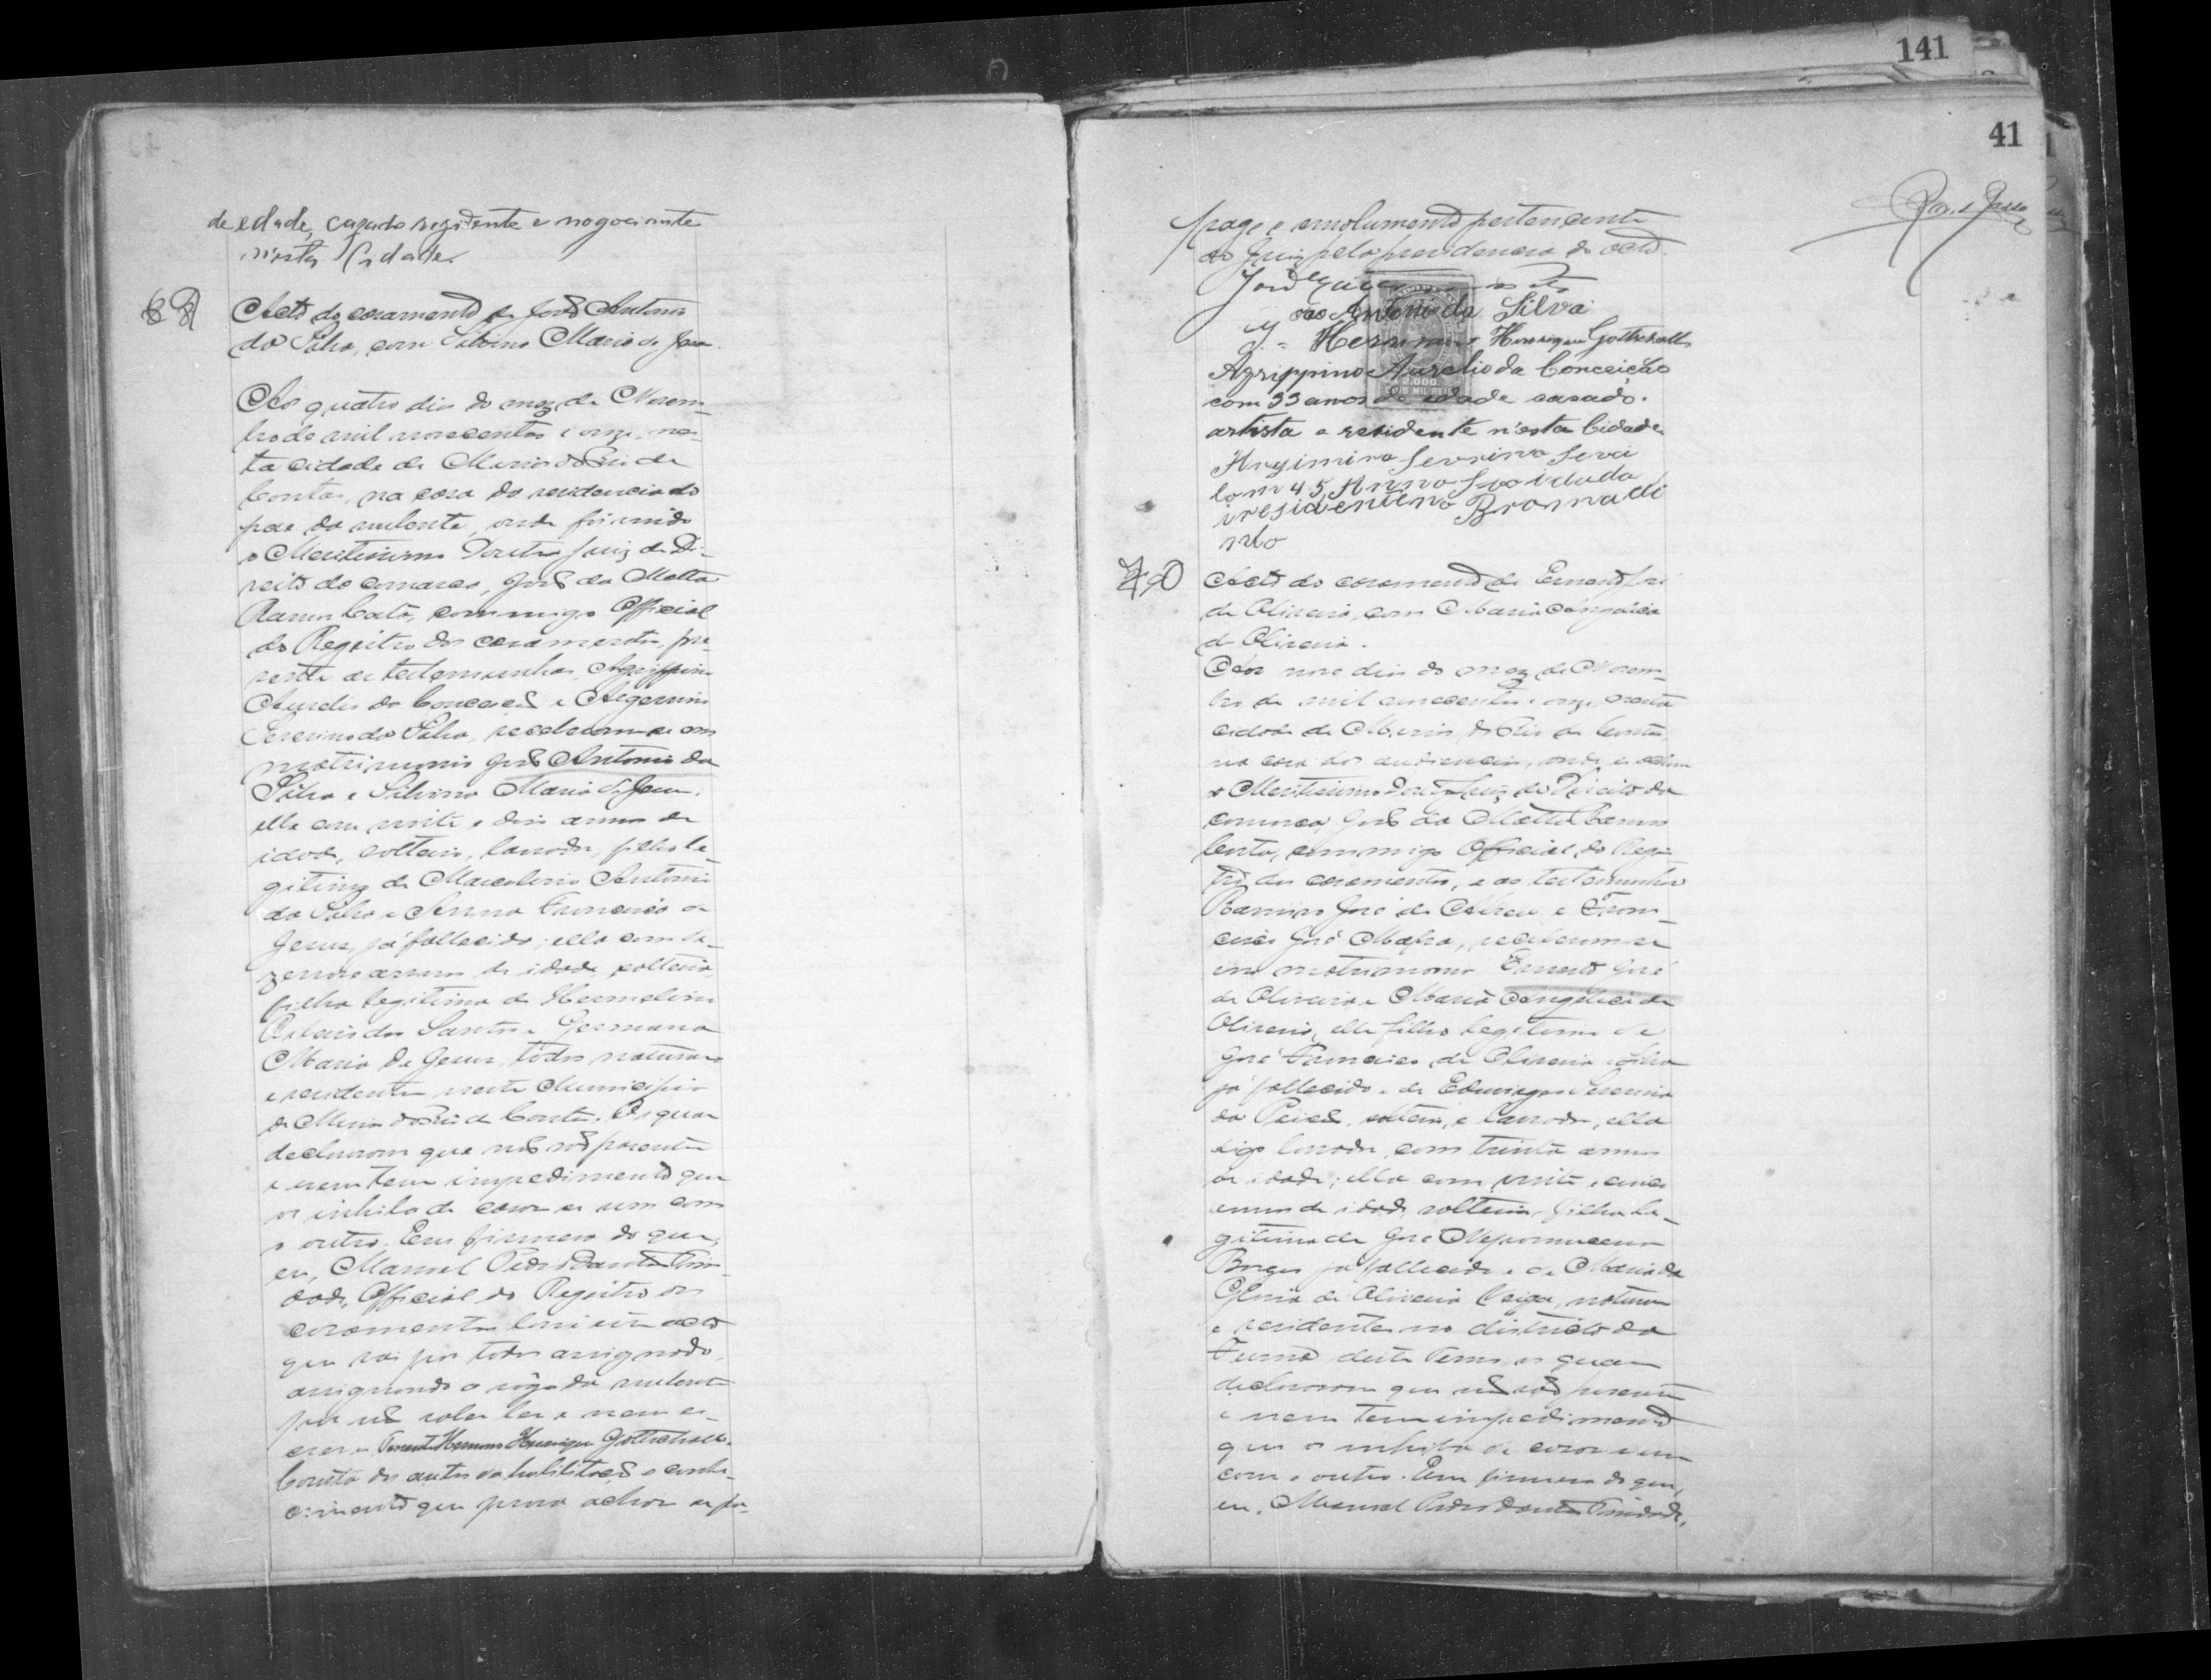 de edade, cazado rezidente e nogociante
n'esta Cidade.
Acto do casamento de José Antonio
da Silva, com Silvina Maria de Jesus.
Aos quatro dias do mez de Novem-
bro de mil novecentos e onze, nes-
ta cidade de Minas do Rio de
Contas, na casa da residencia do
pae da nubente, onde foi vindo
o Meritissimo Doutor Juiz de Di-
reito da comarca, José da Motta
commigo Official
do Registro dos casamentos, pre-
sente as testemunhas, Agrippino
Aurelio da Conceição e Argemiro
Severino da Silva, receberam-se em
matrimonio José Antonio da
Silva e Silvina Maria de Jesus,
elle com vinte e dois annos de
idade, solteiro, lavrador, filho le-
gitimo de Marcolino Antonio
da Silva e Anna Francisca de
Jesus, já fallecida; ella com de-
zenove annos de idade, solteira,
filha legitima de Hermelino
dos Santos e Germana
Maria de Jesus, todos naturaes
e residentes neste Municipio
de Minas do Rio de Contas. Os quaes
declararam que não são parentes
e nem tem impedimento que
os inhiba de casar-se um com
o outro. Em firmeza do que,
eu, Manoel Pedro Dantas Trin-
dade, Official do Registro dos
casamentos lavrei este acto
que vai por todos assignado,
assignando a rogo da nubente
por não saber ler e nem es-
crever Tenente Hermano Henrique Gottschall.
Consta dos autos da habilitação o conhe-
cimento que prova achar-se pa-
141
41
pago o emolumento pertencente
ao Juiz pela presidencia do acto.
José
Antonio da Silva
Hermano Henrique Gottschall
Agrippino Aurelio da Conceição
com 33 annos de edade casado.
artista e residente n'esta Cidade
2.000
MIL REIS
Argimiro Severino
com 45 Anno idada
70
Acto do casamento de Ernesto José
de Oliveira, com Maria Angelica
de Oliveira.
Aos nove dias do mez de Novem-
bro de mil novecentos e onze, nesta
cidade de Minas do Rio de Contas
na casa das audiencias, onde se achava
o Meritissimo Doutor Juiz de Direito da
comarca, José da Motta
commigo Official do Regis-
tro dos casamentos, e as testemunhas
Ramiro José de Abreu e Fran-
cisco José Mafra, receberam-se
em matrimonio Ernesto José
de Oliveira e Maria Angelica de
Oliveira, elle filho legitimo de
José Francisco de Oliveira
já fallecido e de Eduviges Severina
da Paixão, solteiro, e lavrador, ella
digo lavrador, com trinta annos
de idade; ella com vinte e cinco
annos de idade, solteira, filha le-
gitima de José Nepomuceno
Borges já fallecido e de Maria da
Gloria de Oliveira naturaes
e residentes no districto da
Furna deste Termo, os quaes
declararam que não são parentes
e nem tem impedimento
que os inhiba de casar-se um
com o outro. Em firmeza do que,
eu, Manoel Pedro Dantas Trindade,